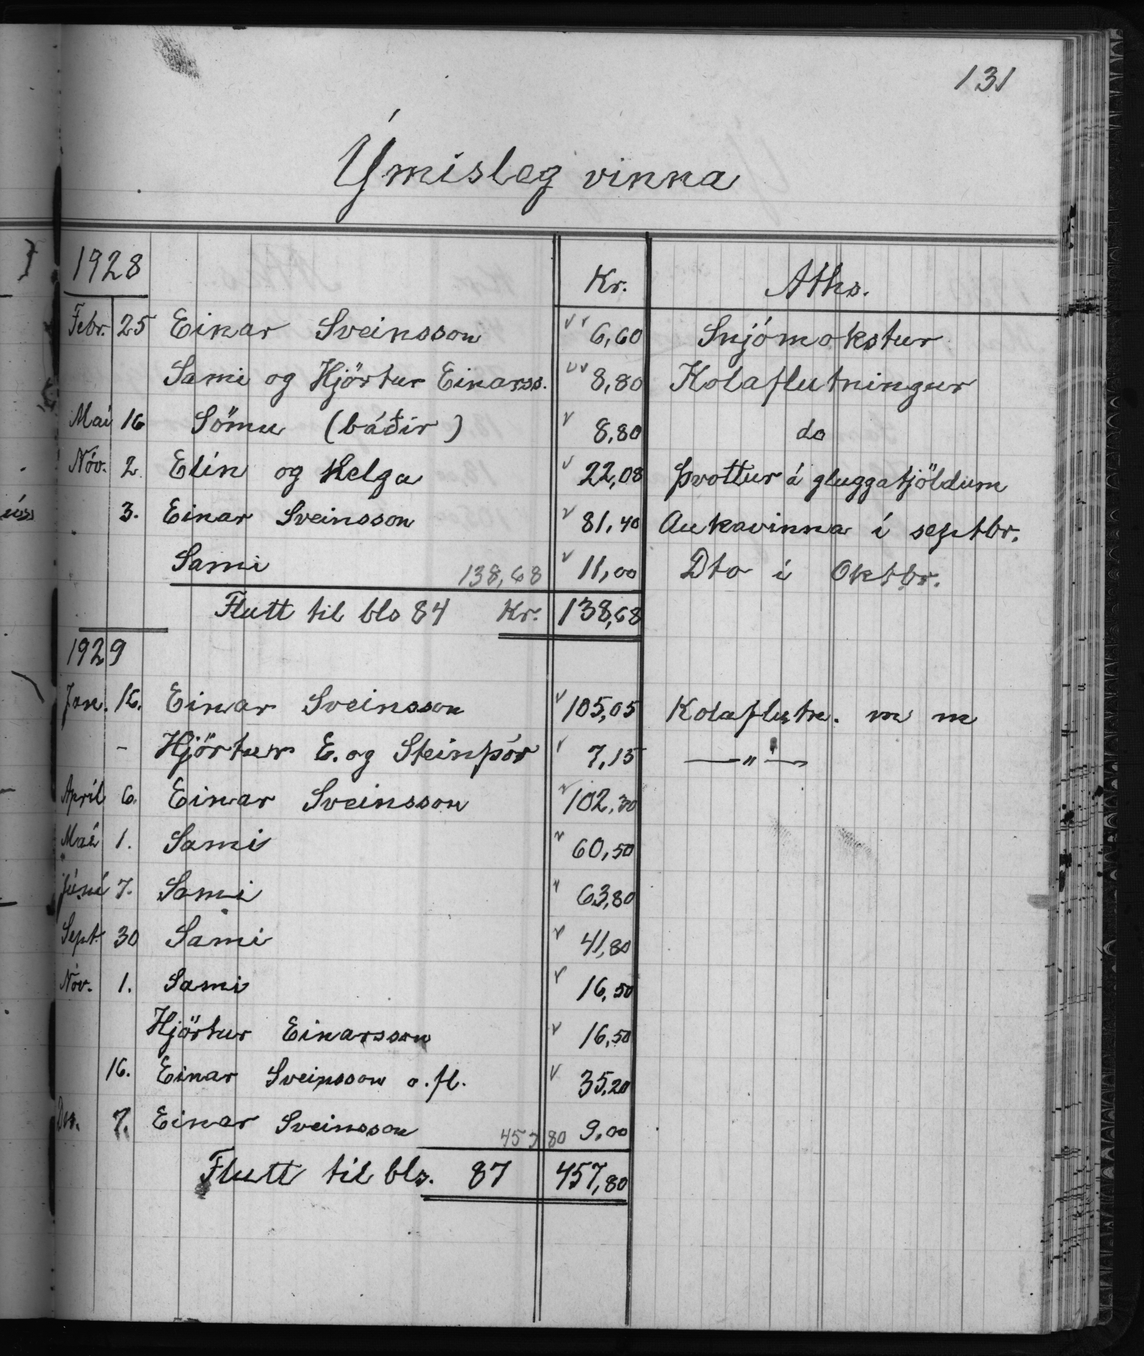 131
Ýmisleg vinna
1928 Kr. Aths.
Febr. 25 Einar Sveinsson 6,60 Snjómokstur
Sami og Hjörtur Einarss. 8,80 Kolaflutningur
Maí 16 Sömu (báðir) 8,80 do
Nóv. 2 Elín og Helga 22,08 Þvottur á gluggatjöldum
3. Einar Sveinsson 81,40 Aukavinna í septbr.
Sami 138,68 11,00 Dto í Oktbr.
Flutt til bls 84 Kr. 138,68
1929
Jan. 15. Einar Sveinsson 105,05 Kolaflutn. m m
– Hjörtur E. og Steinþór 7,15 —"—
Apríl 6. Einar Sveinsson 102,30
Maí 1. Sami 60,50
Júní 7. Sami 63,80
Sept 30 Sami 41,80
Nóv. 1. Sami 16,50
Hjörtur Einarsson 16,50
16. Einar Sveinsson o.fl. 35,20
Des. 7. Einar Sveinsson 457 80 9,00
Flutt til bls. 87 457,80